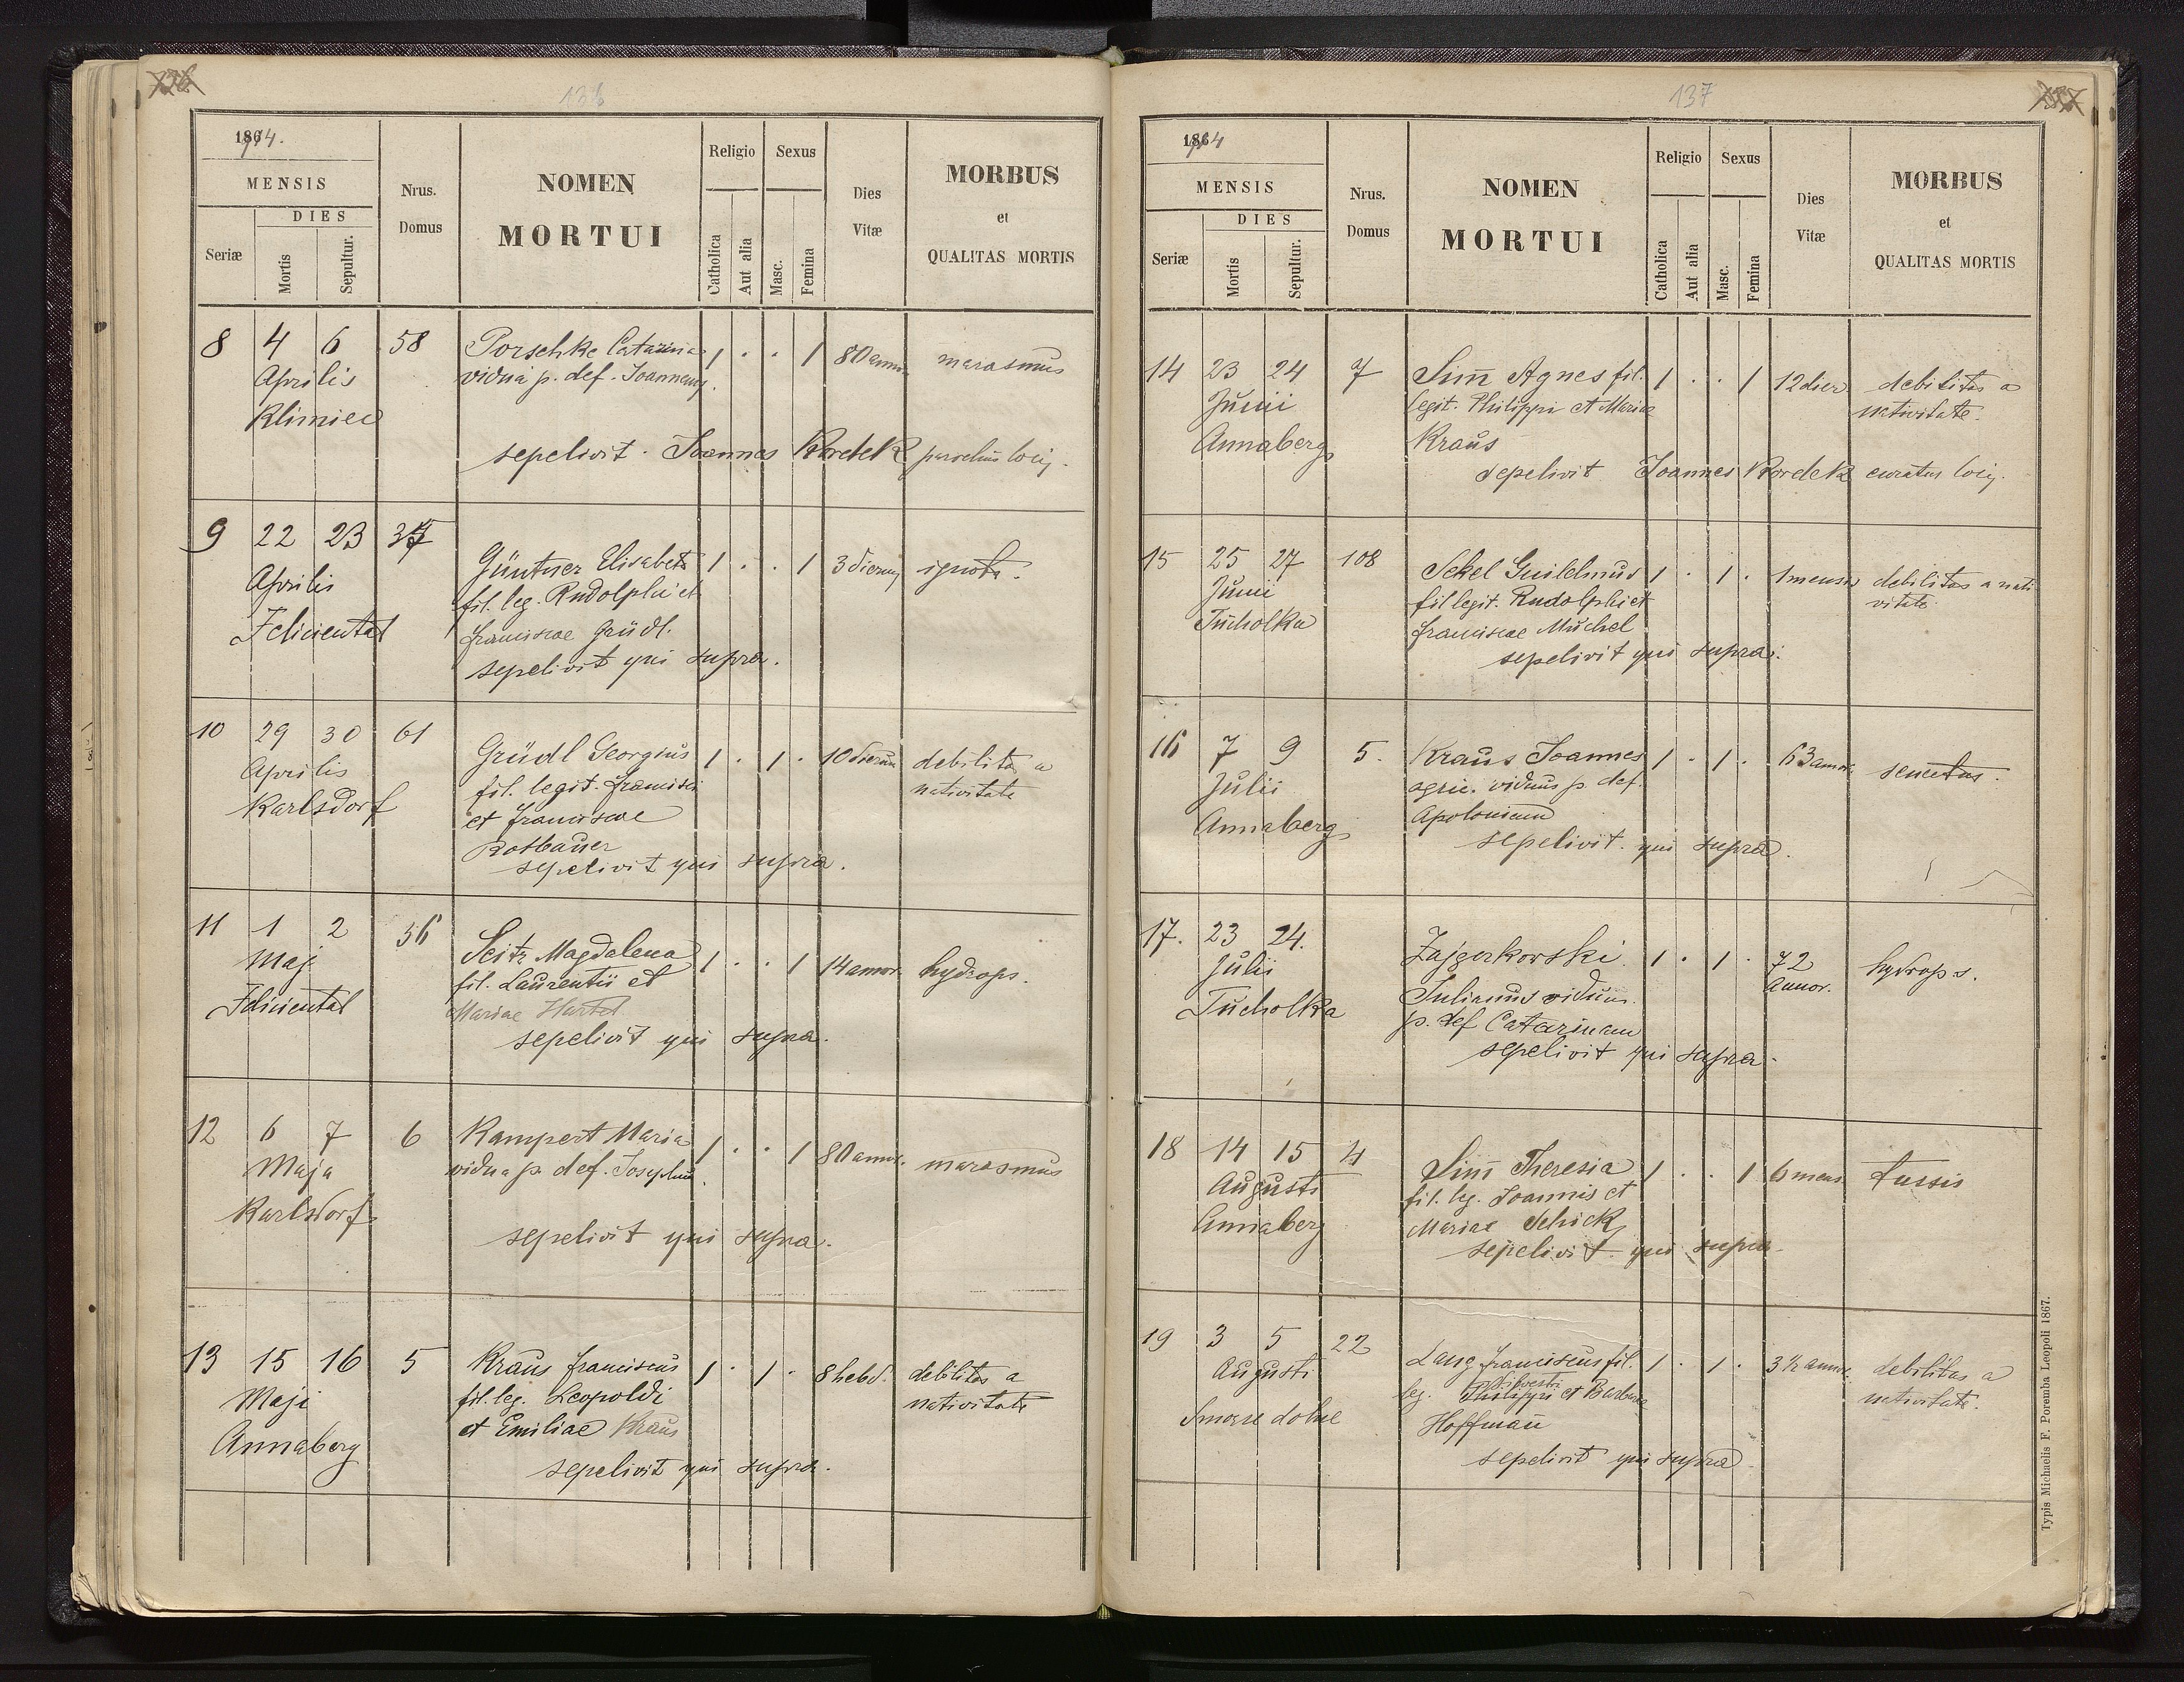 136
1874.
MENSIS
DIES
Seriæ
Mortis
Sepultur.
Nrus.
Domus
NOMEN
MORTUI
Religio
Catholica
Aut alia
Sexus
Masc.
Femina
Dies
Vitæ
MORBUS
et
QUALITAS MORTIS
8 4 6 58 Porschke Catarina 1 . . 1 80 annor. marasmus
Aprilis vidua p. def. Joannem.
Klimiec
sepelivit Joannes Kordek parochus locij.
9 22 23 37
Güntner Elisabeta 1 . . 1 3 dierum ignota.
Aprilis fil. leg. Rudolphi et
Feliciental Franciscae Gründl.
sepelivit qui supra.
10 29 30 61 Gründl Georgius 1 . 1 . 10 dierum debilitas a
Aprilis fil. legit. Francisci nativitate
Karlsdorf et Franciscae
Rotbauer
sepelivit qui supra.
11 1 2 36 Seitz Magdalena 1 . . 1 14 annor. hydrops.
Maj fil. Laurentii et
Feliciental Mariae Hartel
sepelivit qui supra.
12 6 7 6 Kampert Maria 1 . . 1 80 annor. marasmus
Maja vidua p. def. Josephum.
Karlsdorf
sepelivit qui supra.
13 15 16 5 Kraus Franciscus 1 . 1 . 8 hebd. debilitas a
Maji fil. leg. Leopoldi nativitate
Annaberg et Emiliae Kraus
sepelivit qui supra.
137
1874
MENSIS
DIES
Seriæ
Mortis
Sepultur.
Nrus.
Domus
NOMEN
MORTUI
Religio
Catholica
Aut alia
Sexus
Masc.
Femina
Dies
Vitæ
MORBUS
et
QUALITAS MORTIS
14 23 24 7 Sim̄ Agnes fil. 1 . . 1 12 dier. debilitas a
Junii legit. Philippi et Mariae nativitate.
Annaberg Kraus
sepelivit Joannes Kordek curatus locij.
15 25 27 108 Sekel Guilelmus 1 . 1 . 1 mensis debilitas a nati
Junii fil legit. Rudolphi et vitate.
Tucholka Franciscae Muchel
sepelivit qui supra.
16 7 9 5. Kraus Joannes 1 . 1 . 63 annor. senectus.
Julii agric. viduus p. def.
Annaberg Apoloniam
sepelivit qui supra.
17. 23 24. Zajgerkorski 1 . 1 . 72 hydrops.
Julii Julianus viduus annor.
Tucholka p. def Catarinam
sepelivit qui supra.
18 14 15 4 Sim̄ Theresia 1 . . 1 6 mens tussis
Augusti fil. leg. Joannis et
Annaberg Mariae Schick
sepelivit qui supra.
19 3 5 22 Lang Franciscus fil. 1 . 1 . 3 1/2 annor. debilitas a
Silvestri
Augusti leg. Philippi et Barbarae nativitate.
Smorze dolne Hoffman̄
sepelivit qui supra
Typis Michaelis F. Poremba Leopoli 1867.